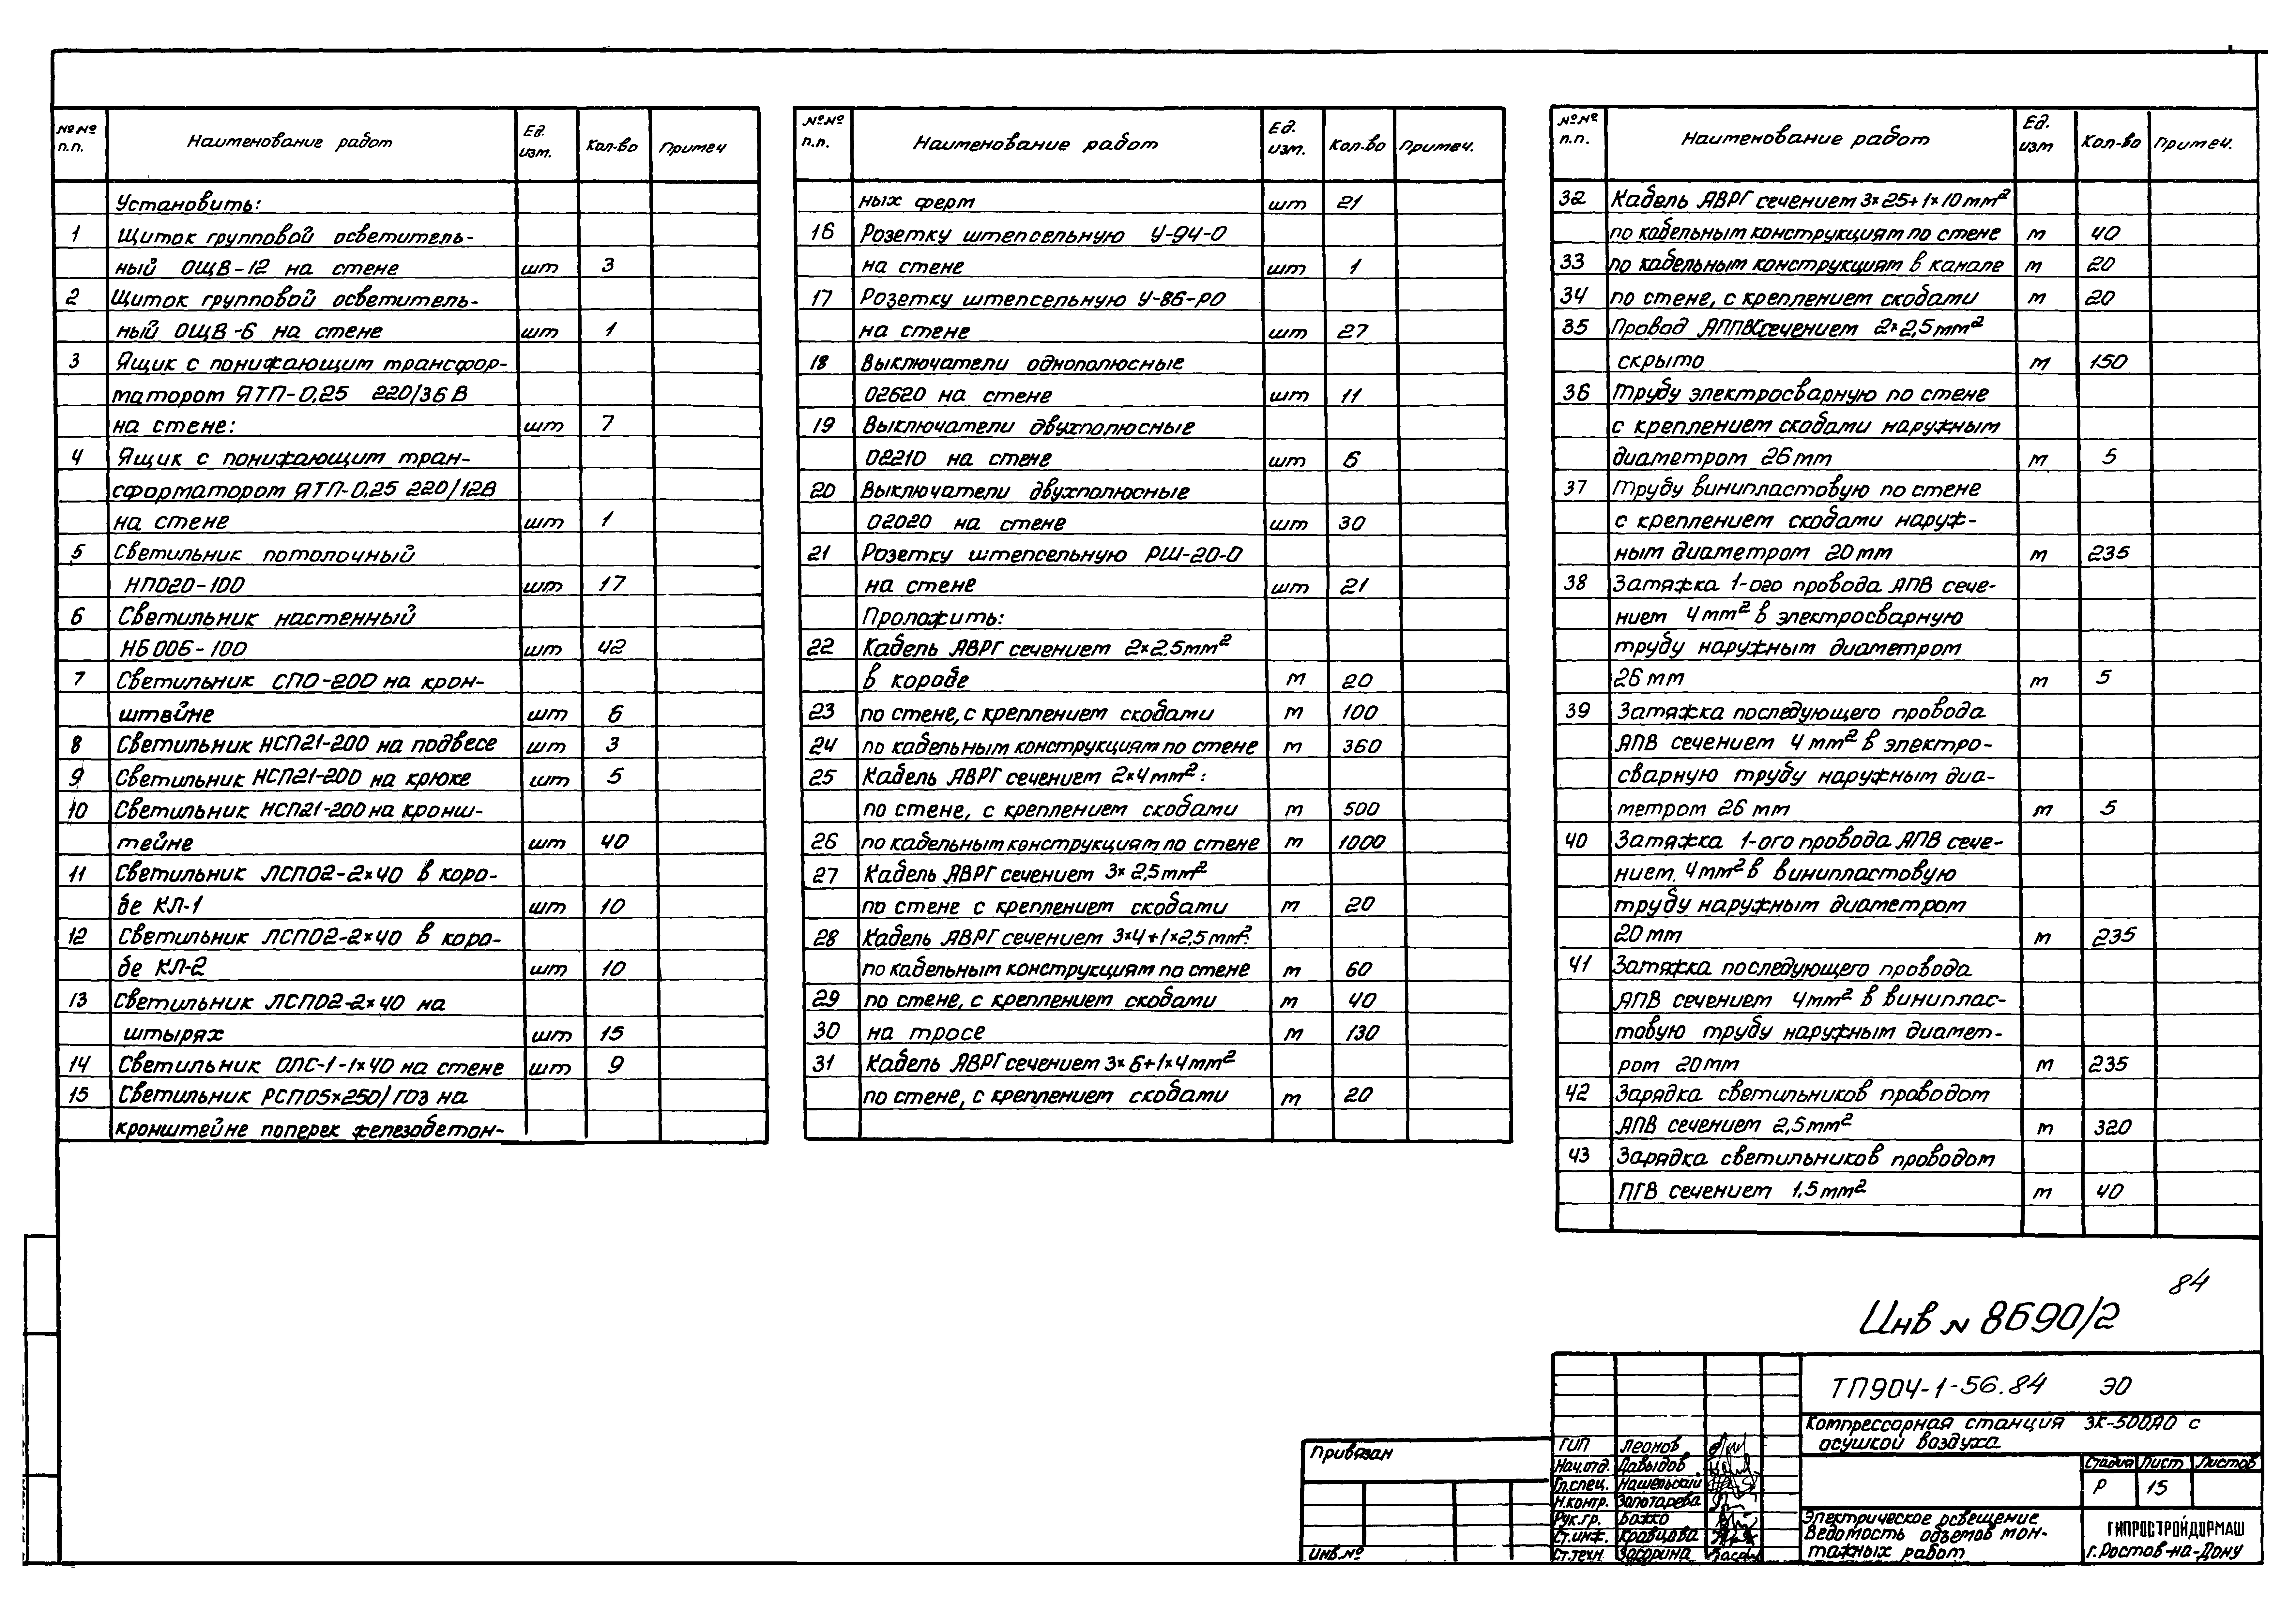 №№ п.п. Наименование работ Ед. изм. Кол-во Примеч
Установить:
1 Щиток групповой осветитель-
ный ОЩВ-12 на стене шт 3
2 Щиток групповой осветитель-
ный ОЩВ-6 на стене шт 1
3 Ящик с понижающим трансфор-
матором ЯТП-0,25 220/36 В
на стене: шт 7
4 Ящик с понижающим тран-
сформатором ЯТП-0,25 220/12В
на стене шт 1
5 Светильник потолочный
НПО20-100 шт 17
6 Светильник настенный
НБ006-100 шт 42
7 Светильник СПО-200 на крон-
штвйне шт 6
8 Светильник НСП21-200 на подвесе шт 3
9 Светильник НСП21-200 на крюке шт 5
10 Светильник НСП21-200 на кронш-
тейне шт 40
11 Светильник ЛСП02-2×40 в коро-
бе КЛ-1 шт 10
12 Светильник ЛСП02-2×40 в коро-
бе КЛ-2 шт 10
13 Светильник ЛСП02-2×40 на
штырях шт 15
14 Светильник ОЛС-1-1×40 на стене шт 9
15 Светильник РСП05×250/Г03 на
кронштейне поперек железобетон-
№№ п.п. Наименование работ Ед. изм. Кол-во Примеч.
ных ферм шт 21
16 Розетку штепсельную У-94-0
на стене шт 1
17 Розетку штепсельную У-86-РО
на стене шт 27
18 Выключатели однополюсные
02620 на стене шт 11
19 Выключатели двухполюсные
02210 на стене шт 6
20 Выключатели двухполюсные
02020 на стене шт 30
21 Розетку штепсельную РШ-20-0
на стене шт 21
Проложить:
22 Кабель АВРГ сечением 2×2,5мм²
в коробе м 20
23 по стене, с креплением скобами м 100
24 по кабельным конструкциям по стене м 360
25 Кабель АВРГ сечением 2×4мм²:
по стене, с креплением скобами м 500
26 по кабельным конструкциям по стене м 1000
27 Кабель АВРГ сечением 3×2,5мм²
по стене с креплением скобами м 20
28 Кабель АВРГ сечением 3×4+1×2,5мм²:
по кабельным конструкциям по стене м 60
29 по стене, с креплением скобами м 40
30 на тросе м 130
31 Кабель АВРГ сечением 3×6+1×4мм²
по стене, с креплением скобами м 20
№№ п.п. Наименование работ Ед. изм Кол-во Примеч.
32 Кабель АВРГ сечением 3×25+1×10мм²
по кабельным конструкциям по стене м 40
33 по кабельным конструкциям в канале м 20
34 по стене, с креплением скобами м 20
35 Провод АППВС сечением 2×2,5мм²
скрыто м 150
36 Трубу электросварную по стене
с креплением скобами наружным
диаметром 26мм м 5
37 Трубу винипластовую по стене
с креплением скобами наруж-
ным диаметром 20мм м 235
38 Затяжка 1-ого провода АПВ сече-
нием 4мм² в электросварную
трубу наружным диаметром
26мм м 5
39 Затяжка последующего провода
АПВ сечением 4мм² в электро-
сварную трубу наружным диа-
метром 26 мм м 5
40 Затяжка 1-ого провода АПВ сече-
нием. 4мм² в винипластовую
трубу наружным диаметром
20мм м 235
41 Затяжка последующего провода
АПВ сечением 4мм² в виниплас-
товую трубу наружным диамет-
ром 20мм м 235
42 Зарядка светильников проводом
АПВ сечением 2,5мм² м 320
43 Зарядка светильников проводом
ПГВ сечением 1,5мм² м 40
84
Инв № 8690/2
ТП904-1-56.84 ЭО
Компрессорная станция 3К-500А0 с
осушкой воздуха
Привязан
Инв.№
ГИП Леонов
Нач.отд. Давыдов
Гл.спец. Нашельский
Н.контр. Золотарева
Рук.гр. Божко
Ст.инж. Кравцова
Ст.техн. Засорина
Стадия Лист Листов
Р 15
Электрическое освещение
Ведомость объемов мон-
тажных работ
ГИПРОСТРОЙДОРМАШ
г.Ростов-на-Дону